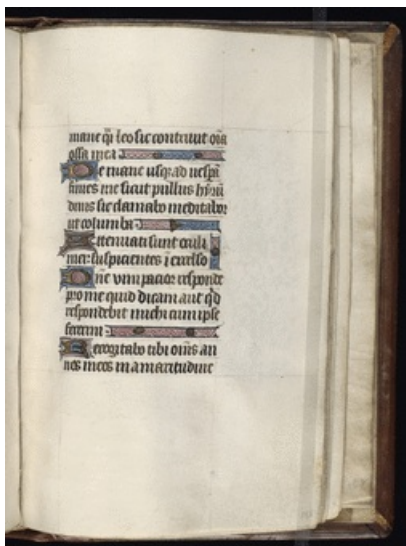 mane q̄ leo sic contriuit oīa
ossa mea
De mane usq; ad uespā
finies me sicut pullus hyrū
dinis sic clamabo meditabor
ut columba
Attenuati sunt oculi
mei suspicientes ī excelso
Dn̄e vim pacior responde
pro me quid dicam aut qd̄
respondebit michi cum ipse
fecerim
Recogitabo tibi om̄s an
nos meos in amaritudine